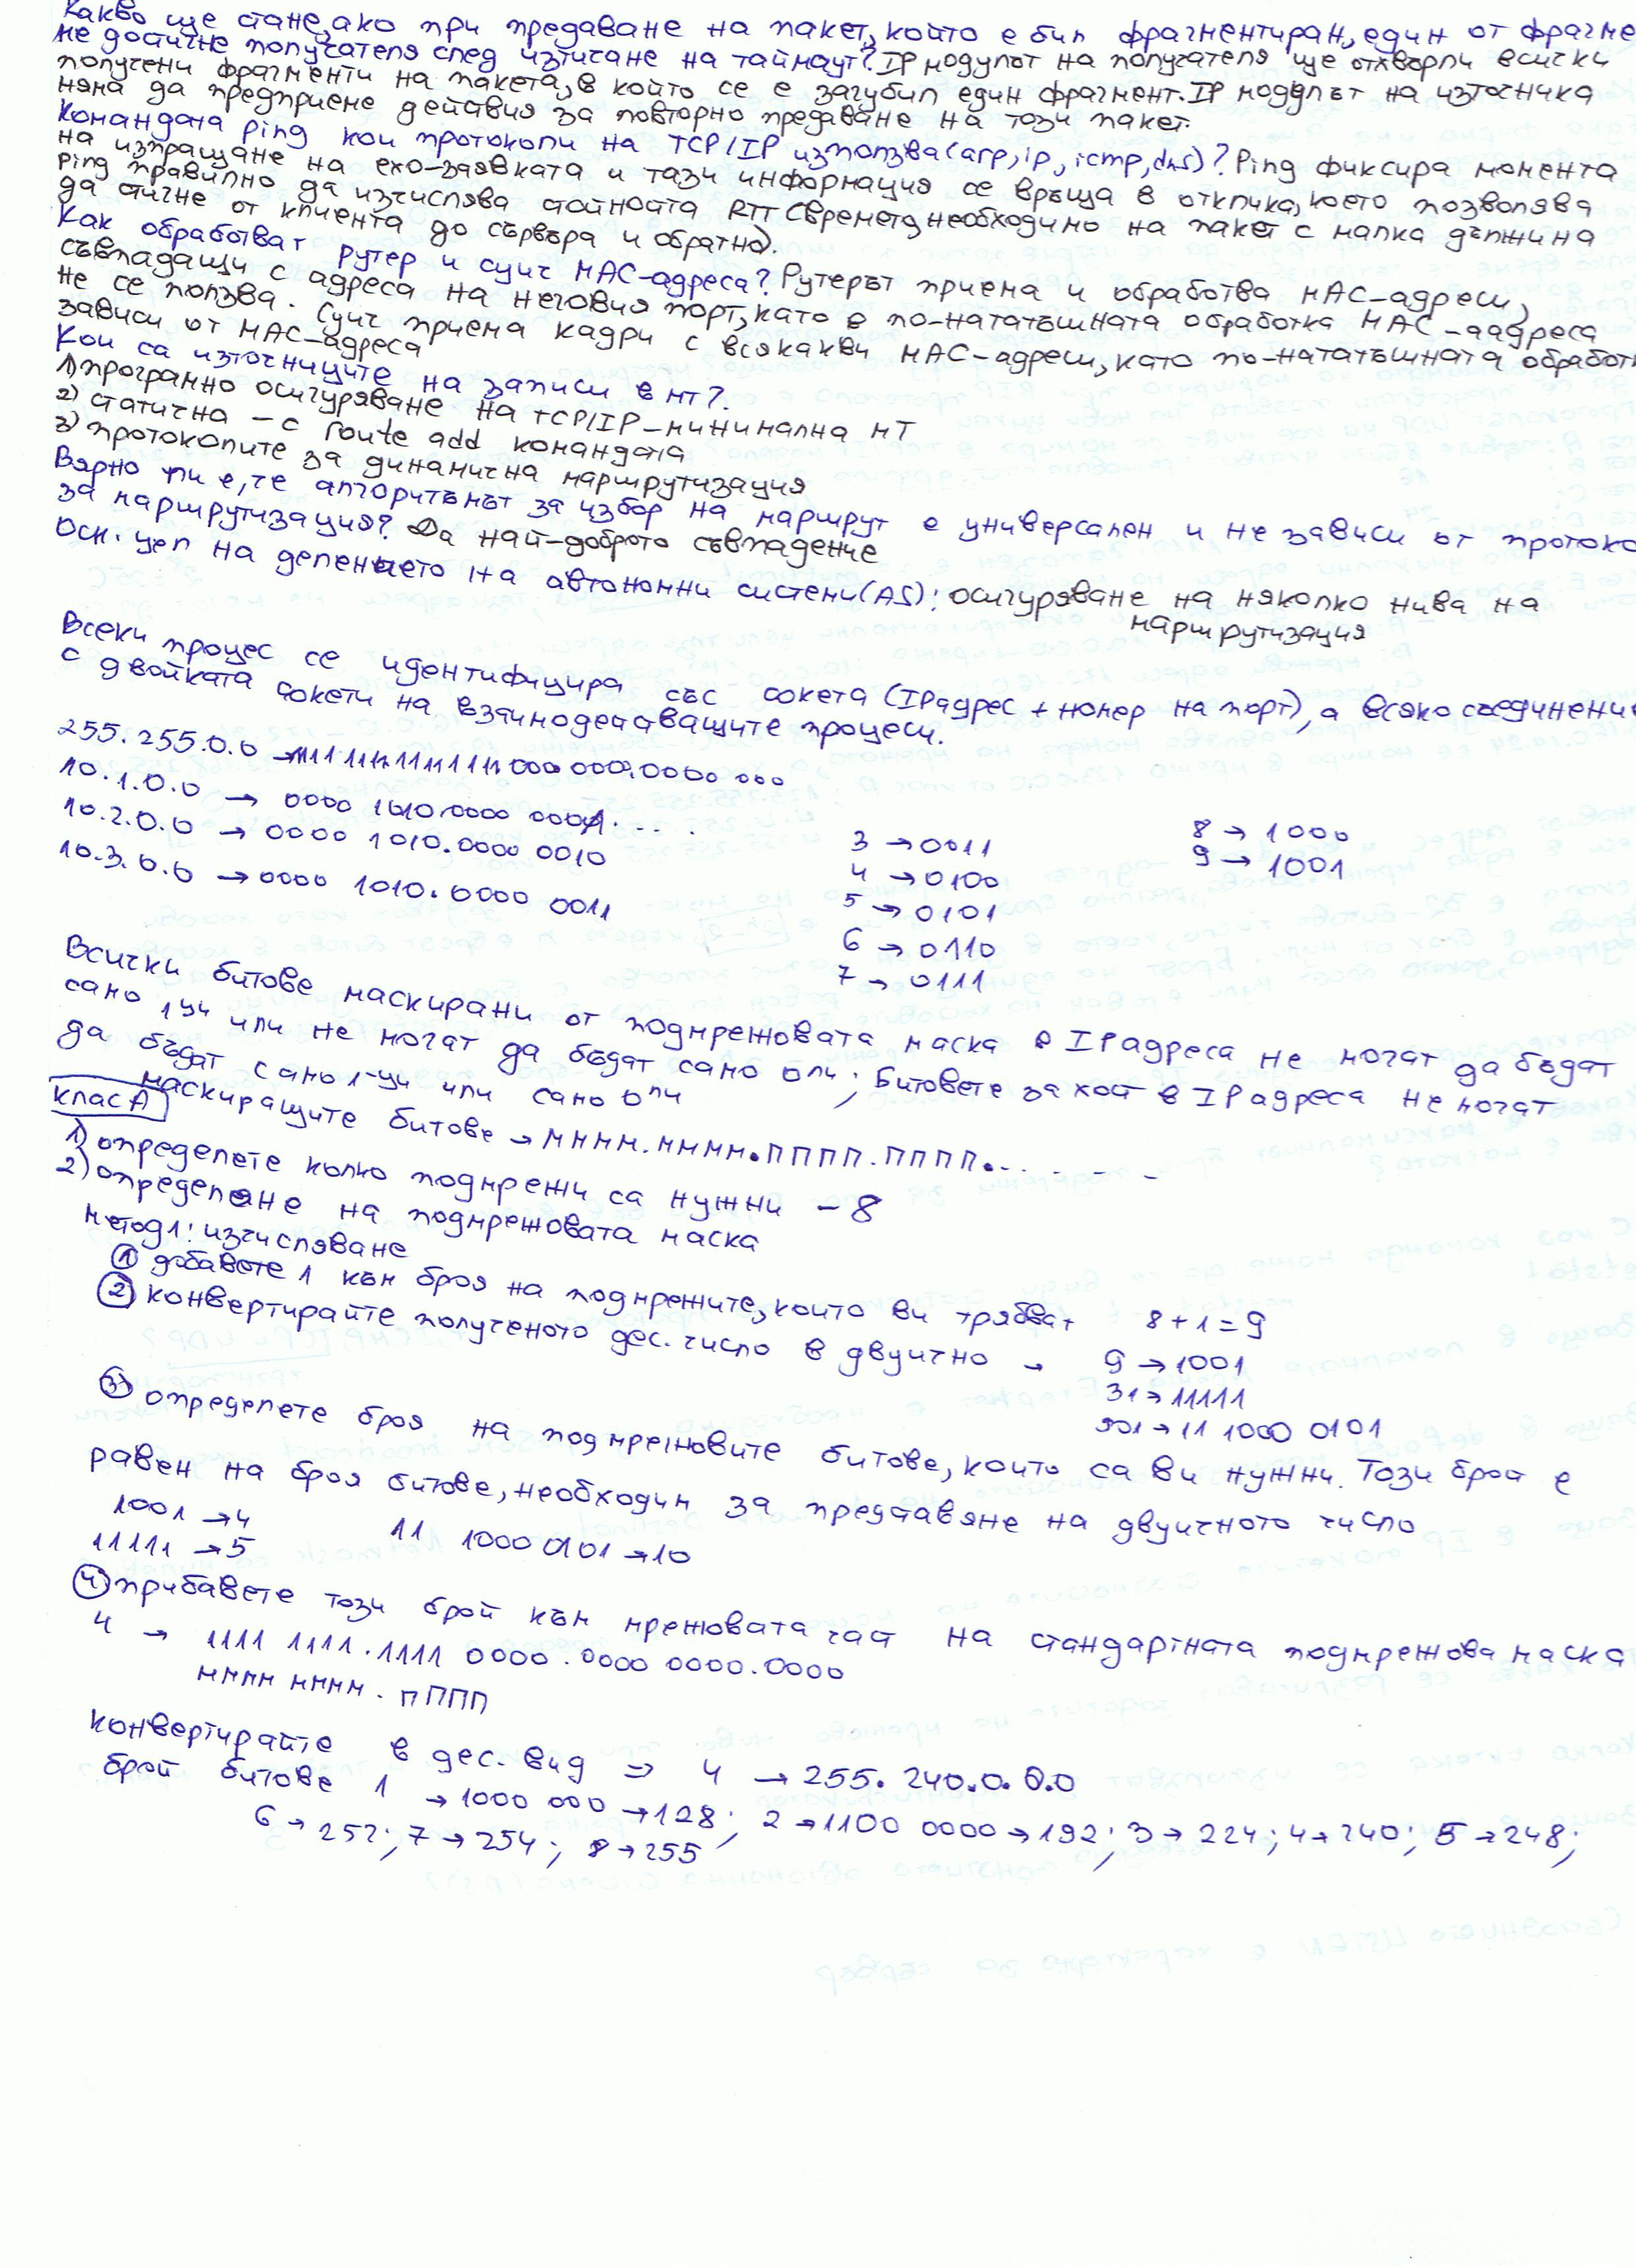 Какво ще стане, ако при предаване на пакет, който е бил фрагментиран, един от фрагме
не достигне получателя след изтичане на таймаут? IP модулът на получателя ще отхвърли всички
получени фрагменти на пакета, в който се е загубил един фрагмент. IP модулът на източника
няма да предприеме действия за повторно предаване на този пакет.
Командата ping кои протоколи на TCP/IP използва (arp, ip, icmp, dns)? Ping фиксира момента
на изпращане на ехо-заявката и тази информация се връща в отклика, което позволява
Ping правилно да изчислява стойността RTT (времето, необходимо на пакет с малка дължина
да стигне от клиента до сървъра и обратно).
Как обработват рутер и суич MAC-адреса? Рутерът приема и обработва MAC-адреси,
съвпадащи с адреса на неговия порт, като в по-нататъшната обработка MAC-аадреса
не се ползва. Суич приема кадри с всякакви MAC-адреси, като по-нататъшната обработк
зависи от MAC-адреса
Кои са източниците на записи в МТ?
1) програмно осигуряване на TCP/IP-минимална МТ
2) статична - с route add командата
3) протоколите за динамична маршрутизация
Вярно ли е, че алгоритъмът за избор на маршрут е универсален и не зависи от протоко
за маршрутизация? Да най-доброто съвпадение
Осн. цел на делението на автономни системи (AS): осигуряване на няколко нива на
маршрутизация
Всеки процес се идентифицира със сокета (IPадрес + номер на порт), а всяко съединение
с двойката сокети на взаимодействащите процеси.
255.255.0.0 → 1111 1111.1111 1111.000 000.0000 000
10.1.0.0 → 0000 1010.0000 0001. . . .
10.2.0.0 → 0000 1010.0000 0010
10.3.0.0 → 0000 1010.0000 0011
3 → 0011
4 → 0100
5 → 0101
6 → 0110
7 → 0111
8 → 1000
9 → 1001
Всички битове маскирани от подмрежовата маска в IPадреса не могат да бъдат
само 1ци или не могат да бъдат само 0ли; Битовете за хост в IPадреса не могат
да бъдат само 1-ци или само 0ли
Клас А
маскиращите битове → мммм.мммм.пппп.пппп. . . - - -
1) определете колко подмрежи са нужни - 8
2) определяне на подмрежовата маска
метод1: изчисляване
① добавете 1 към броя на подмрежите, които ви трябват 8+1=9
② конвертирайте полученото дес. число в двуично → 9 → 1001
31 → 11111
901 → 11 1000 0101
③ определете броя на подмрежовите битове, които са ви нужни. Този брой е
равен на броя битове, необходим за представяне на двуичното число
1001 → 4 11 1000 0101 → 10
11111 → 5
④ прибавете този брой към мрежовата част на стандартната подмрежова маска
4 → 1111 1111.1111 0000.0000 0000.0000
мммм мммм. пппп
конвертирайте в дес. вид ⇒ 4 → 255.240.0.0.0
брой битове 1 → 1000 000 → 128; 2 → 1100 0000 → 192; 3 → 224; 4 → 240; 5 → 248;
6 → 252; 7 → 254; 8 → 255